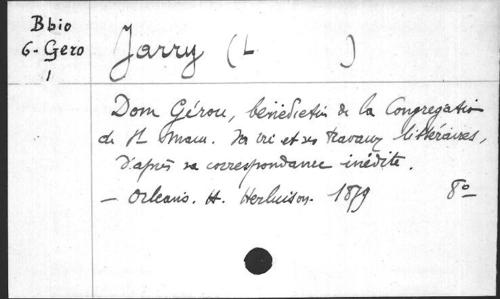 Bbio
6-Gero
1
Jarry (L )
Dom Gérou, bénédictin de la Congrégation
de St Maur. Sa vie et ses travaux littéraires,
d'après sa correspondance inédite.
— Orléans. H. Herluison. 1879 8°